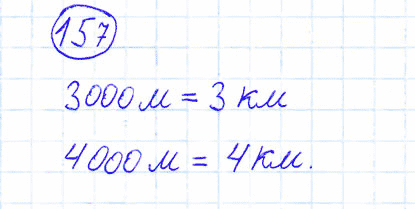 157
3000 м = 3 км
4000 м = 4 км.